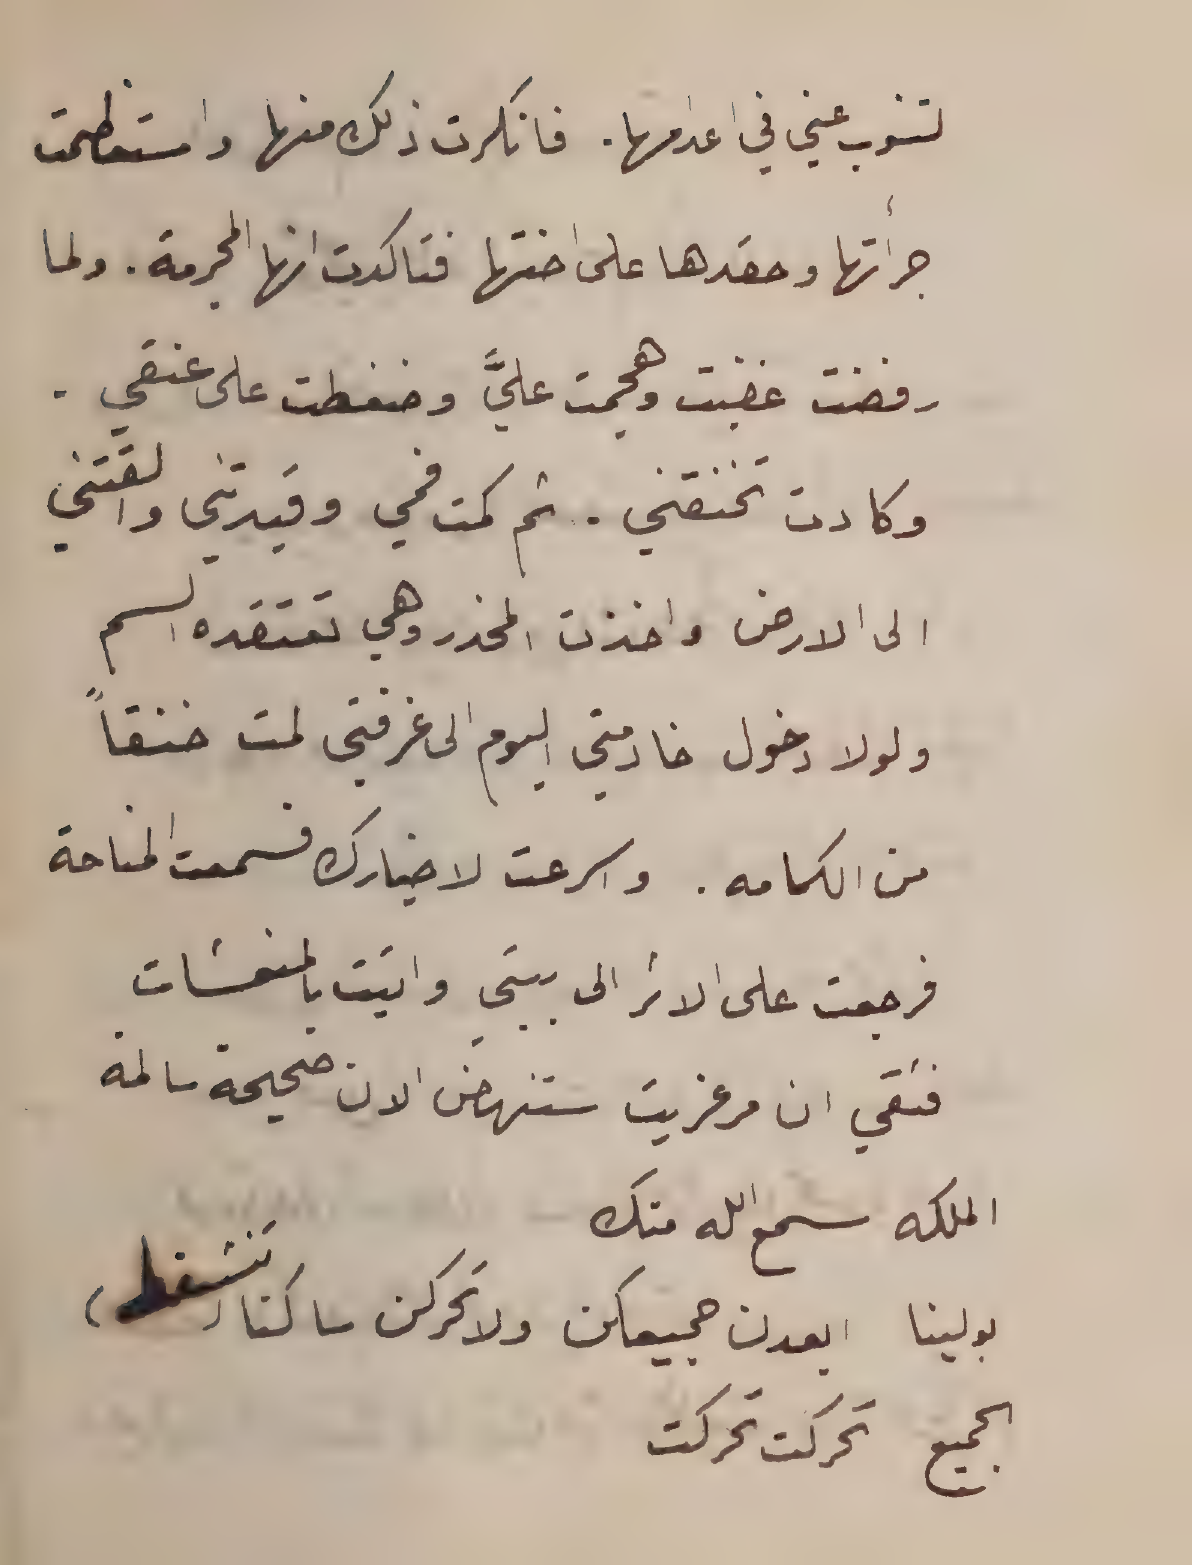 لتنوب عني في اعدامها. فانكرت ذلك منها واستعظمت
جرأتها وحقدها على اختها فتاكدت انها المجرمة. ولما
رفضت غضبت وهجمت عليَّ وضغطت على عنقي.
وكادت تخنقني. ثم كمت فمي وقيدتني والقتني
الى الارض واخذت المخدر وهي تعتقده السم
ولولا دخول خادمتي اليوم الى غرفتي لمت خنقاً
من الكمامه. واسرعت لاخبارك فسمعت المناحة
فرجعت على الاثر الى بيتي واتيت بالمنعشات
فثقي ان مرغريت ستنهض الان صحيحة سالمة
الملكه سمع الله منك
بولينا ابعدن جميعكن ولا تحركن ساكنا (تنشغل)
الجميع تحركت تحركت